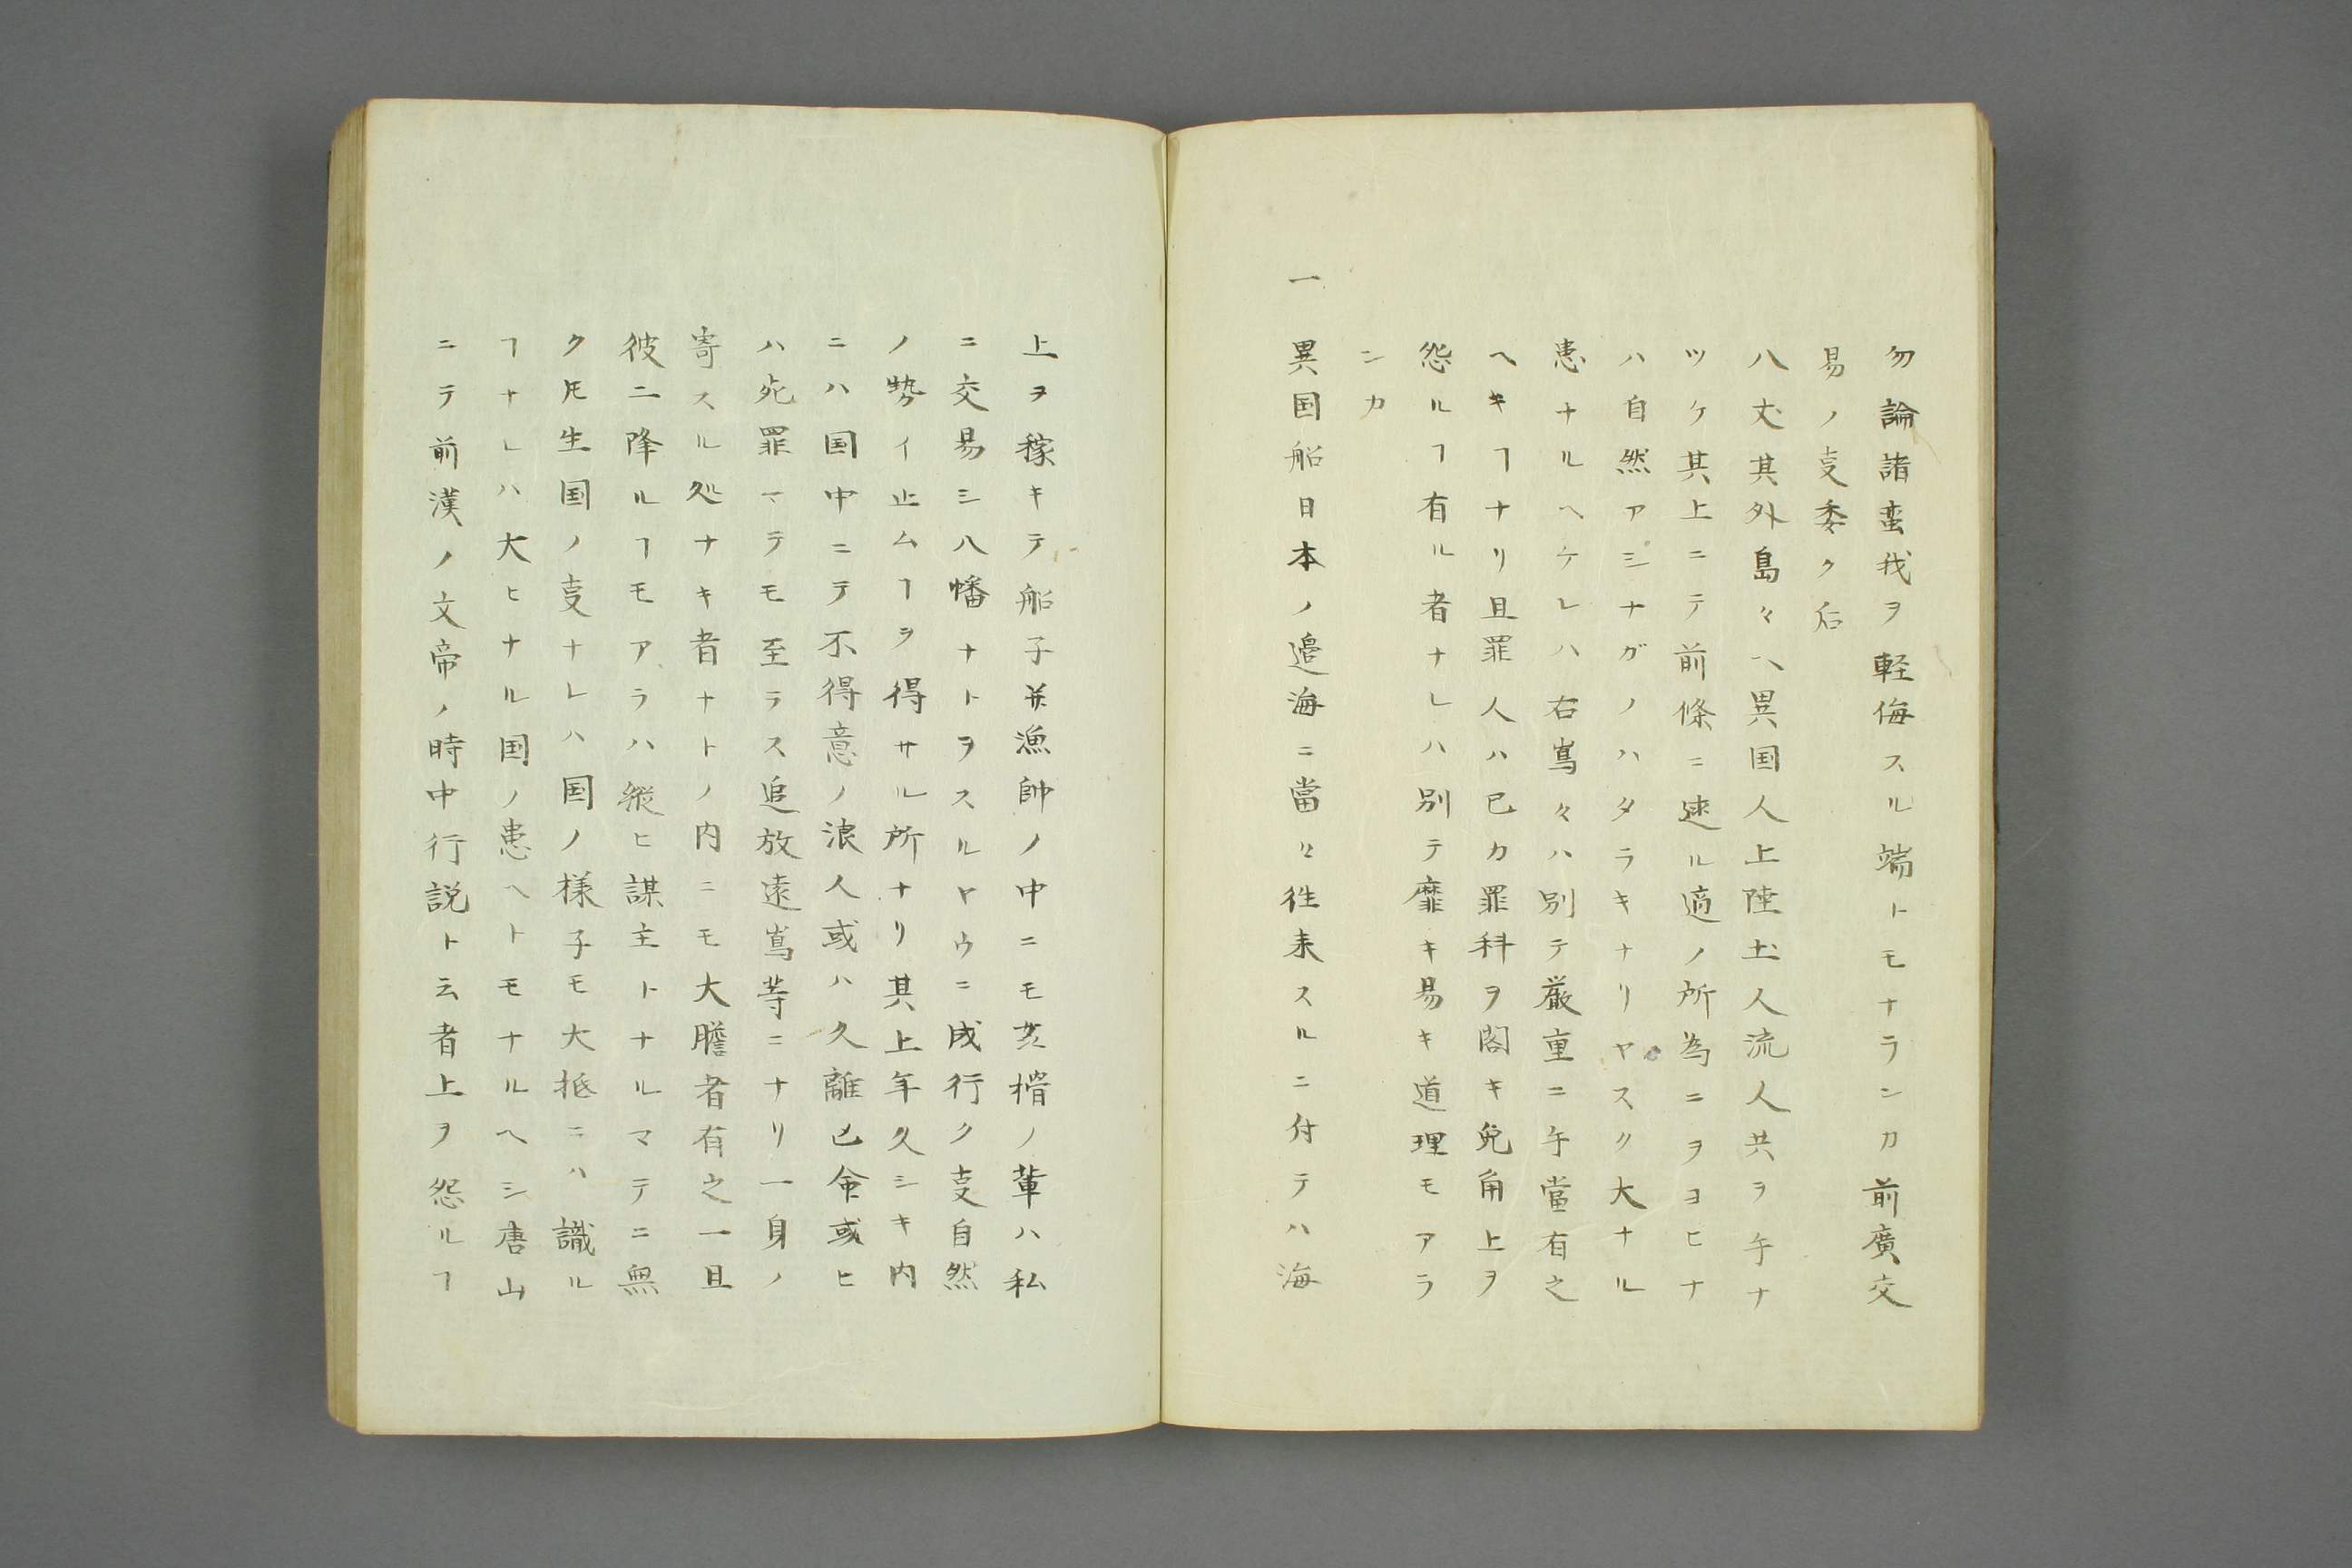 勿論諸蛮我ヲ軽侮スル端トモナランカ前廣交
易ノ𠭏委ク后
八丈其外島々ヘ異国人上陸土人流人共ヲ手ナ
ツケ其上ニテ前條ニ速ル適ノ所為ニヲヨヒナ
ハ自然アシナガノハタラキナリヤスク大ナル
患ナルヘケレハ右嶌々ハ別テ厳重ニ手當有之
ヘキヿナリ且罪人ハ己カ罪科ヲ閣キ兎角上ヲ
怨ルヿ有ル者ナレハ別テ靡キ易キ道理モアラ
ンカ
一異国船日本ノ邉海ニ當々徃来スルニ付テハ海
上ヲ稼キテ船子并漁師ノ中ニモ苙㨋ノ輩ハ私
ニ交易シ八幡ナトヲスルヤウニ成行ク𠭏自然
ノ勢イ止ムヿヲ得サル所ナリ其上年久シキ内
ニハ国中ニテ不得意ノ浪人或ハ久離亡命或ヒ
ハ死罪マテモ至ラス追放遠嶌等ニナリ一身ノ
寄スル処ナキ者ナトノ内ニモ大膽者有之一旦
彼ニ降ルヿモアラハ縦ヒ謀主トナルマテニ無
クトモ生国ノ𠭏ナレハ国ノ様子モ大抵ニハ識ル
ヿナレハ大ヒナル国ノ患ヘトモナルヘシ唐山
ニテ前漢ノ文帝ノ時中行説ト云者上ヲ怨ルヿ